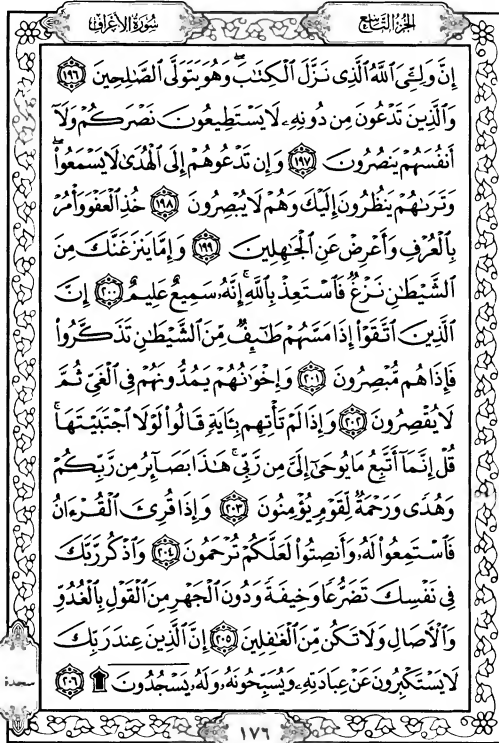 سُورَةُ الأَعْرَافِ
الجُزْءُ التَّاسِعُ
إِنَّ وَلِـِّىَ ٱللَّهُ ٱلَّذِى نَزَّلَ ٱلْكِتَـٰبَ ۖ وَهُوَ يَتَوَلَّى ٱلصَّـٰلِحِينَ ١٩٦
وَٱلَّذِينَ تَدْعُونَ مِن دُونِهِۦ لَا يَسْتَطِيعُونَ نَصْرَكُمْ وَلَآ
أَنفُسَهُمْ يَنصُرُونَ ١٩٧ وَإِن تَدْعُوهُمْ إِلَى ٱلْهُدَىٰ لَا يَسْمَعُوا۟ ۖ
وَتَرَىٰهُمْ يَنظُرُونَ إِلَيْكَ وَهُمْ لَا يُبْصِرُونَ ١٩٨ خُذِ ٱلْعَفْوَ وَأْمُرْ
بِٱلْعُرْفِ وَأَعْرِضْ عَنِ ٱلْجَـٰهِلِينَ ١٩٩ وَإِمَّا يَنزَغَنَّكَ مِنَ
ٱلشَّيْطَـٰنِ نَزْغٌ فَٱسْتَعِذْ بِٱللَّهِ ۚ إِنَّهُۥ سَمِيعٌ عَلِيمٌ ٢٠٠ إِنَّ
ٱلَّذِينَ ٱتَّقَوْا۟ إِذَا مَسَّهُمْ طَـٰٓئِفٌ مِّنَ ٱلشَّيْطَـٰنِ تَذَكَّرُوا۟
فَإِذَا هُم مُّبْصِرُونَ ٢٠١ وَإِخْوَٰنُهُمْ يَمُدُّونَهُمْ فِى ٱلْغَىِّ ثُمَّ
لَا يُقْصِرُونَ ٢٠٢ وَإِذَا لَمْ تَأْتِهِم بِـَٔايَةٍ قَالُوا۟ لَوْلَا ٱجْتَبَيْتَهَا ۚ
قُلْ إِنَّمَآ أَتَّبِعُ مَا يُوحَىٰٓ إِلَىَّ مِن رَّبِّى ۚ هَـٰذَا بَصَآئِرُ مِن رَّبِّكُمْ
وَهُدًى وَرَحْمَةٌ لِّقَوْمٍ يُؤْمِنُونَ ٢٠٣ وَإِذَا قُرِئَ ٱلْقُرْءَانُ
فَٱسْتَمِعُوا۟ لَهُۥ وَأَنصِتُوا۟ لَعَلَّكُمْ تُرْحَمُونَ ٢٠٤ وَٱذْكُر رَّبَّكَ
فِى نَفْسِكَ تَضَرُّعًا وَخِيفَةً وَدُونَ ٱلْجَهْرِ مِنَ ٱلْقَوْلِ بِٱلْغُدُوِّ
وَٱلْـَٔاصَالِ وَلَا تَكُن مِّنَ ٱلْغَـٰفِلِينَ ٢٠٥ إِنَّ ٱلَّذِينَ عِندَ رَبِّكَ
لَا يَسْتَكْبِرُونَ عَنْ عِبَادَتِهِۦ وَيُسَبِّحُونَهُۥ وَلَهُۥ يَسْجُدُونَ ۩ ٢٠٦
سجدة
١٧٦